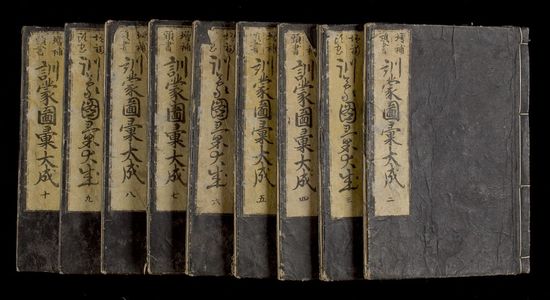 増補
頭書
訓蒙圖彙大成
二
増補
頭書
訓蒙圖彙大成
三
増補
頭書
訓蒙圖彙大成
四
増補
頭書
訓蒙圖彙大成
五
増補
頭書
訓蒙圖彙大成
六
増補
頭書
訓蒙圖彙大成
七
増補
頭書
訓蒙圖彙大成
八
増補
頭書
訓蒙圖彙大成
九
増補
頭書
訓蒙圖彙大成
十